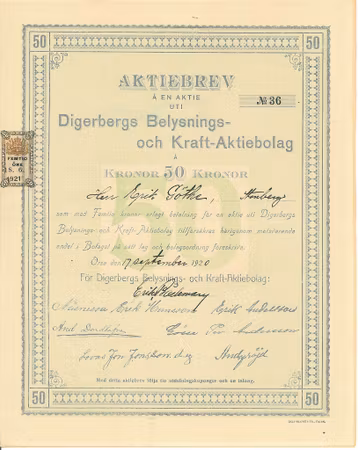 50 50
AKTIEBREV
Å EN AKTIE
UTI
№ 36
Digerbergs Belysnings-
och Kraft-Aktiebolag
Å
KRONOR 50 KRONOR
FEMTIO
ÖRE
18. 6.
1921
Herr Erik Göthe,
som med Femtio kronor erlagt betalning för en aktie uti Digerbergs
Belysnings- och Kraft-Aktiebolag tillförsäkras härigenom motsvarande
andel i Bolaget på sätt lag och bolagsordning föreskriva.
Orsa 17 september 1920
För Digerbergs Belysnings- och Kraft-Aktiebolag:
Erik
Erik Hansson Erik
Per Andersson
Jon
Med detta aktiebrev följa tio utdelningskuponger och en talong.
50 50